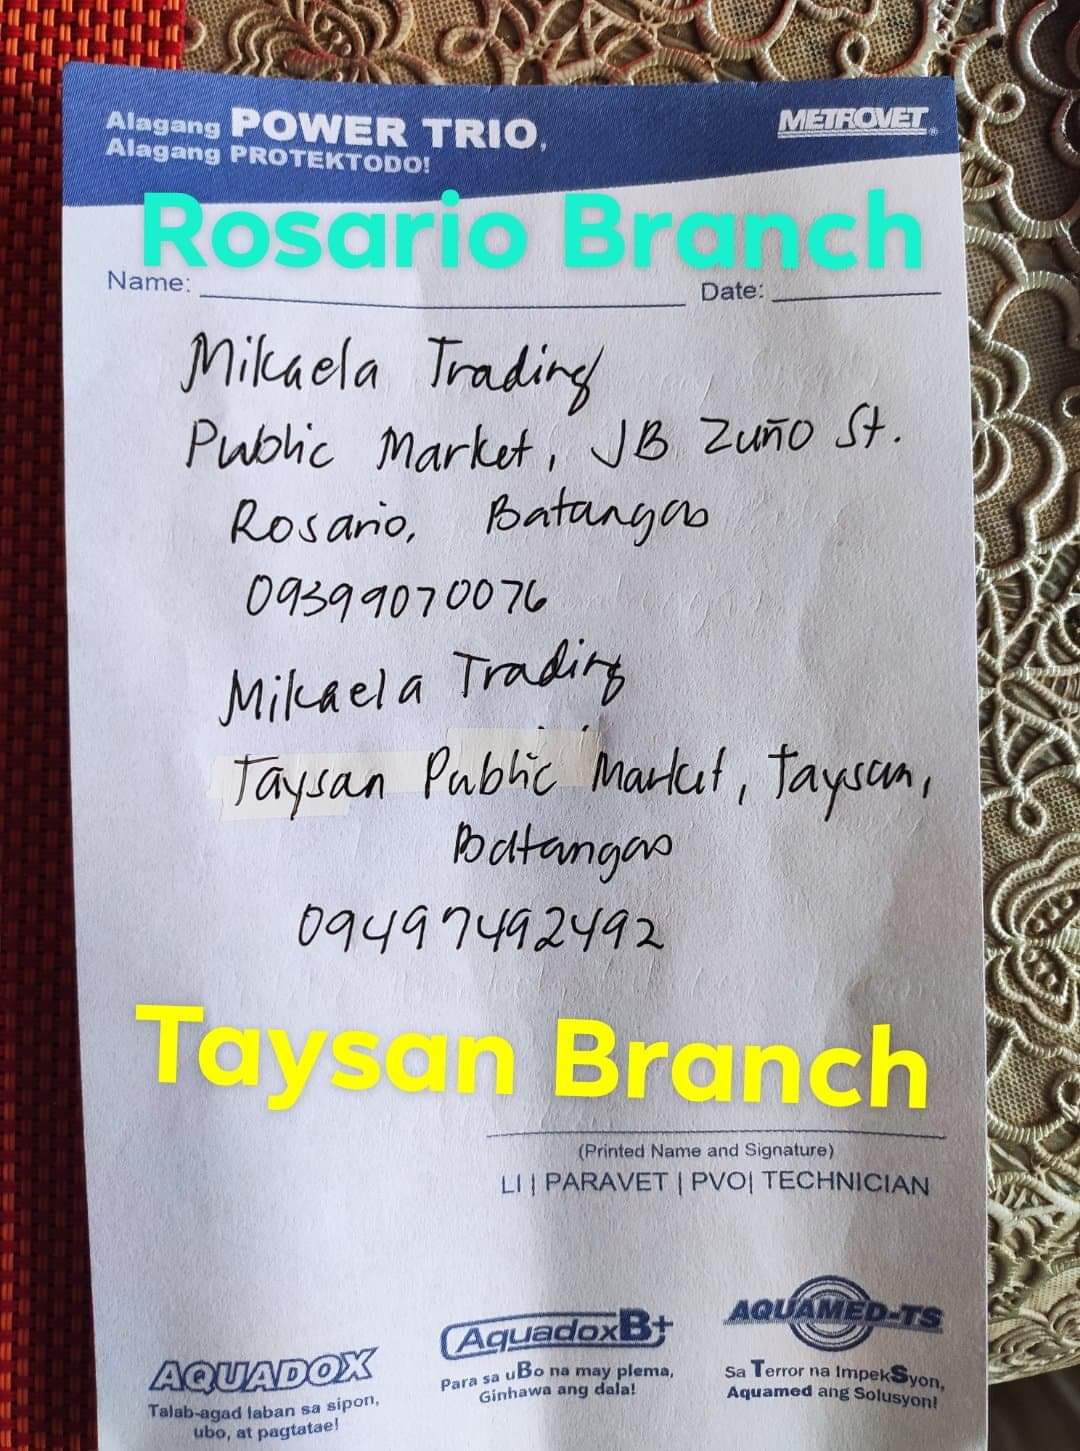 Alagang POWER TRIO,
Alagang PROTEKTODO!
METROVET®
Rosario Branch
Name: Date:
Mikaela Trading
Public Market, JB Zuño St.
Rosario, Batangas
09399070076
Mikaela Trading
Taysan Public Market, Taysan,
Batangas
09497492492
Taysan Branch
(Printed Name and Signature)
LI | PARAVET | PVO| TECHNICIAN
AQUADOX
Talab-agad laban sa sipon,
ubo, at pagtatae!
AquadoxB+
Para sa uBo na may plema,
Ginhawa ang dala!
AQUAMED-TS
Sa Terror na ImpekSyon,
Aquamed ang Solusyon!